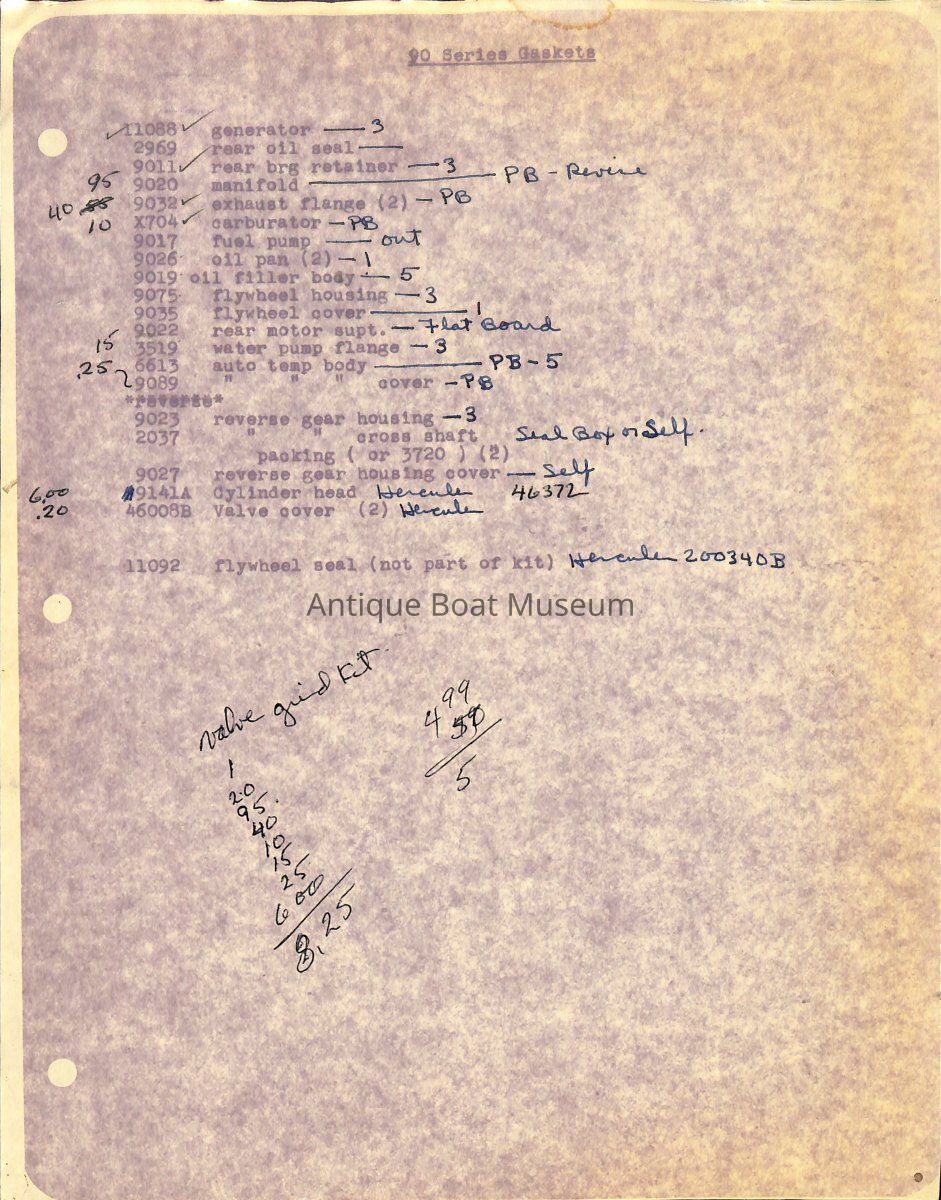 90 Series Gaskets
✓ 11088 ✓ generator — 3
2969 rear oil seal —
9011 ✓ rear brg retainer — 3
95 9020 manifold — PB - Revise
40 9032 ✓ exhaust flange (2) — PB
10 X704 ✓ carburator — PB
9017 fuel pump — out
9026 oil pan (2) — 1
9019 oil filler body — 5
9075 flywheel housing — 3
9035 flywheel cover — 1
9022 rear motor supt. — Flat Board
15 3519 water pump flange — 3
.25 6613 auto temp body — PB - 5
9089 " " " cover - PB
*reverse*
9023 reverse gear housing — 3
2037 " " cross shaft Seal Box or Self.
packing ( or 3720 ) (2)
9027 reverse gear housing cover — Self
6.00 #9141A Cylinder head Hercules 46372
.20 46008B Valve cover (2) Hercules
11092 flywheel seal (not part of kit) Hercules 200340B
Antique Boat Museum
valve grind Kit.
1
20
95.
40
10
15
25
6 00
8.25
4 99
5